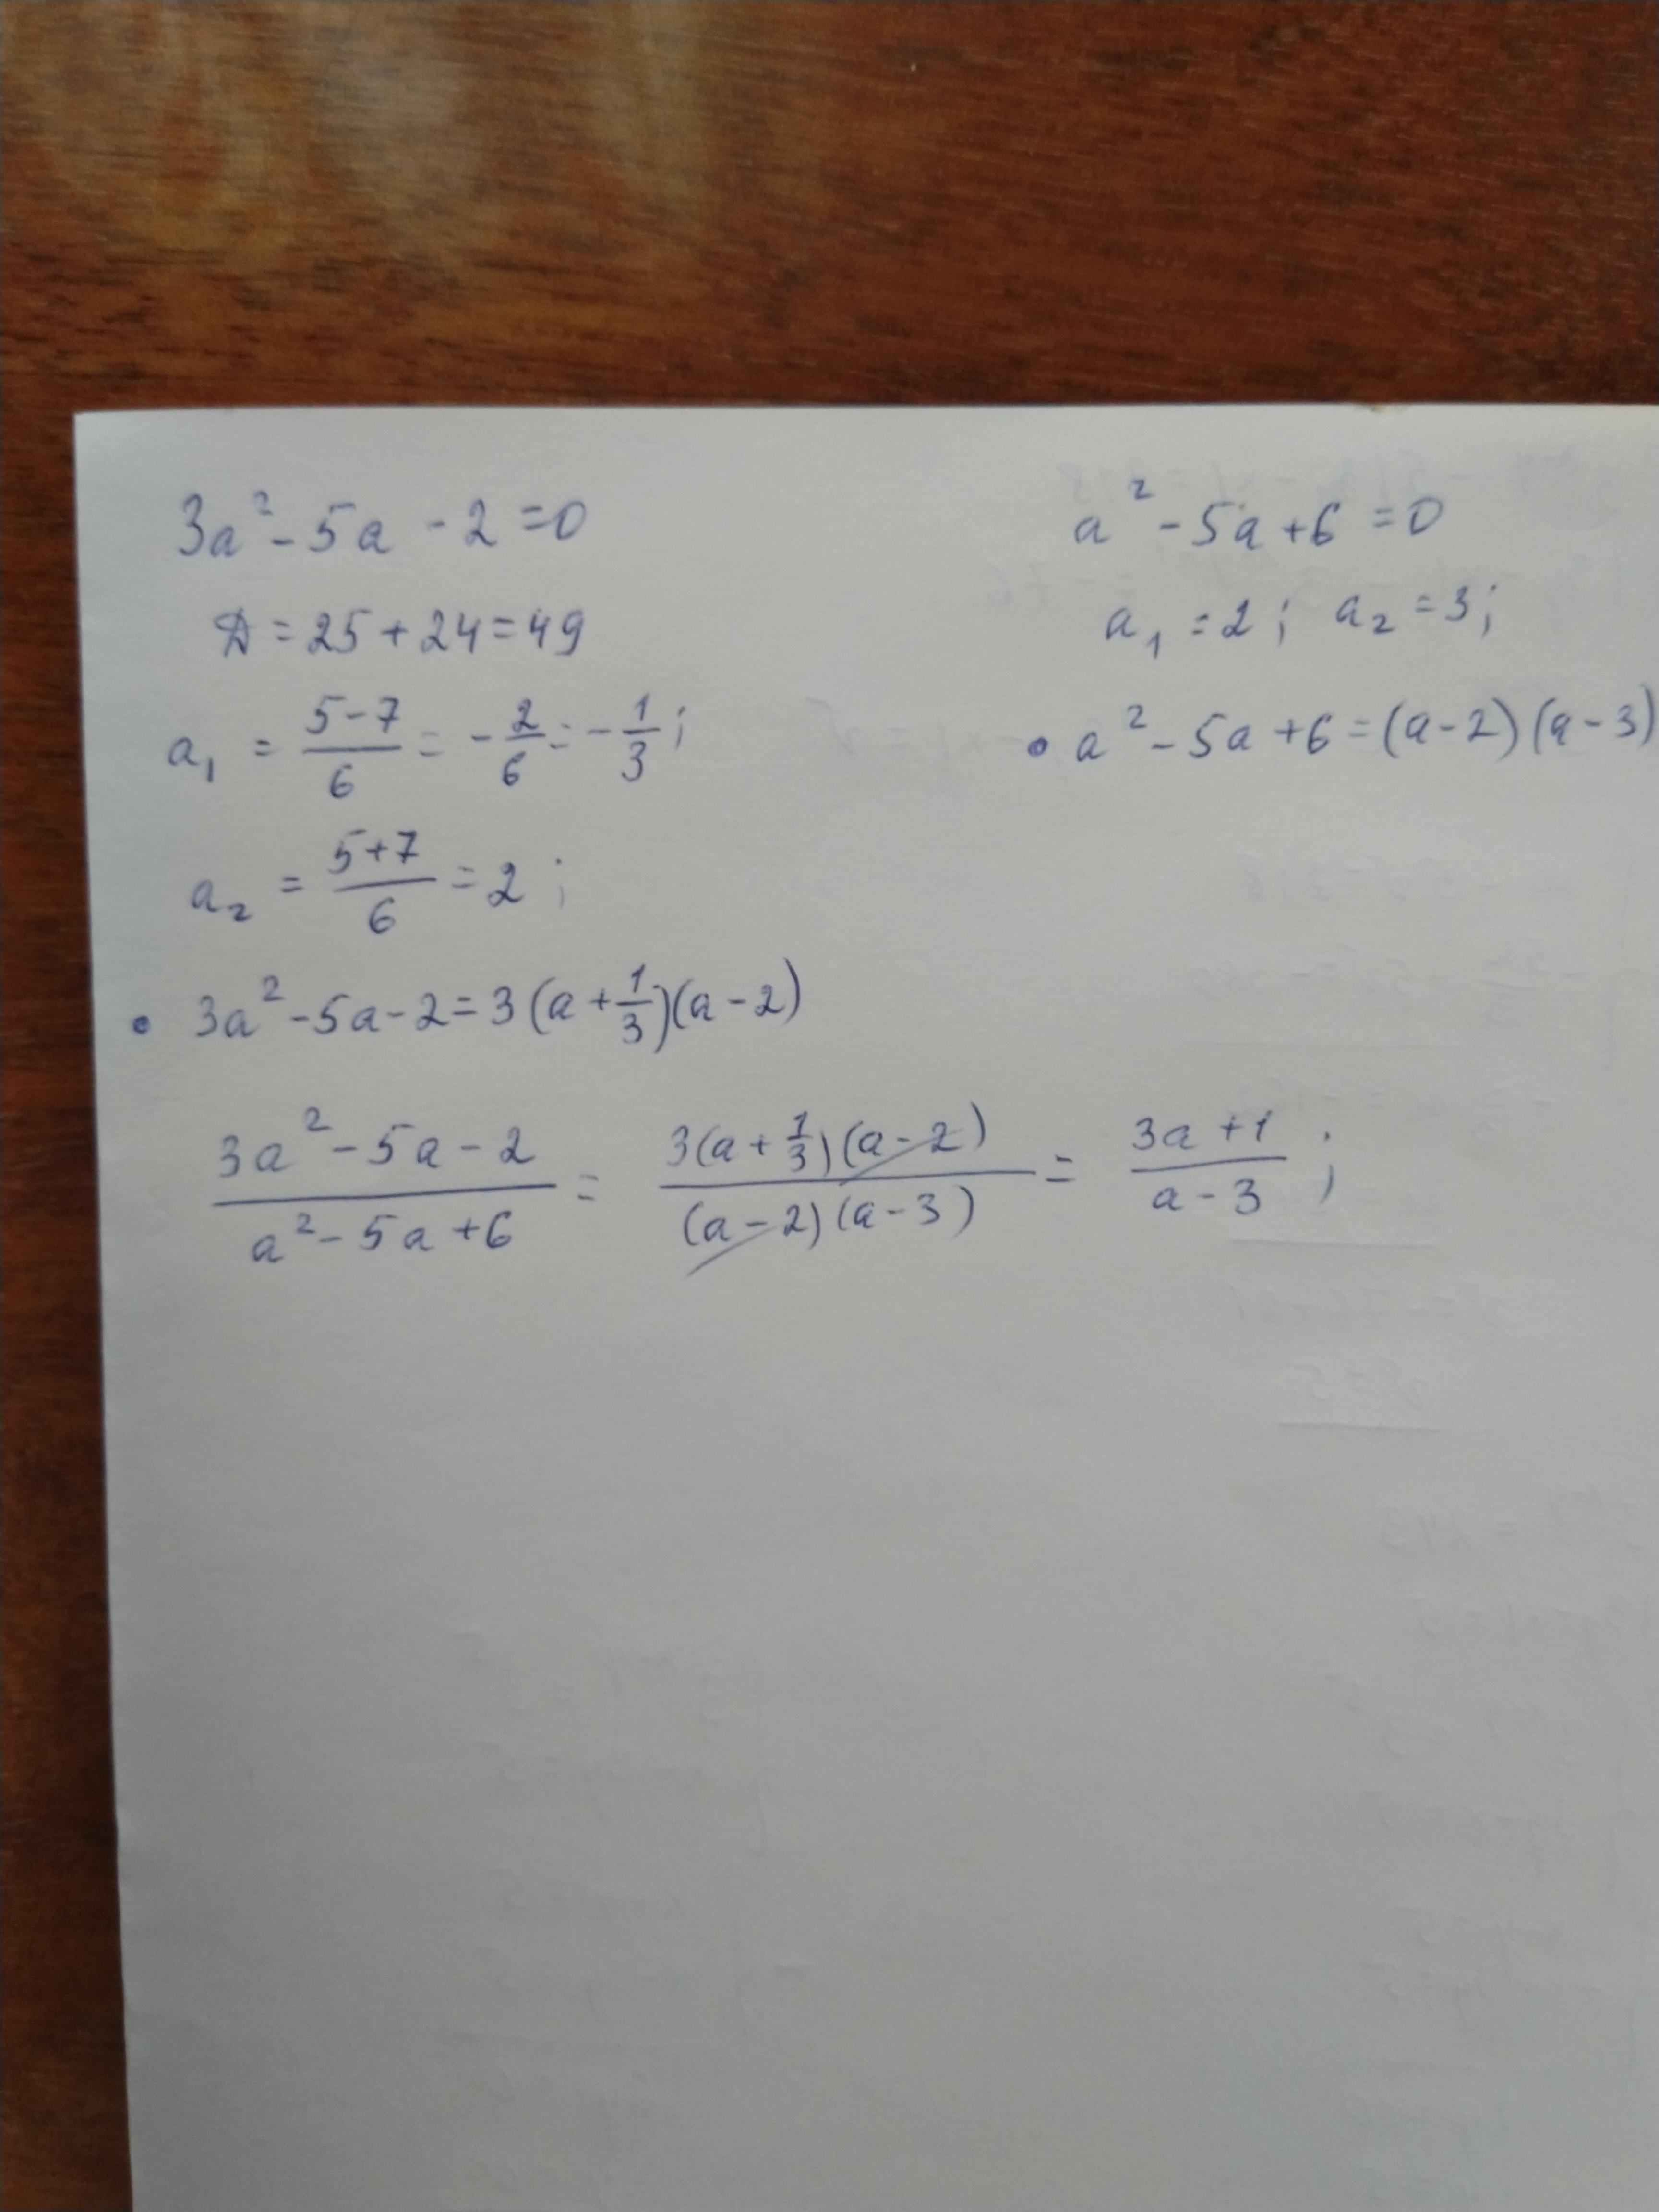 3a² - 5a - 2 = 0
Д = 25 + 24 = 49
a₁ = (5-7)/6 = -2/6 = -1/3;
a₂ = (5+7)/6 = 2;
• 3a² - 5a - 2 = 3(a + 1/3)(a - 2)
a² - 5a + 6 = 0
a₁ = 2; a₂ = 3;
• a² - 5a + 6 = (a - 2)(a - 3)
(3a² - 5a - 2)/(a² - 5a + 6) = (3(a + 1/3)(a - 2))/((a - 2)(a - 3)) = (3a + 1)/(a - 3);